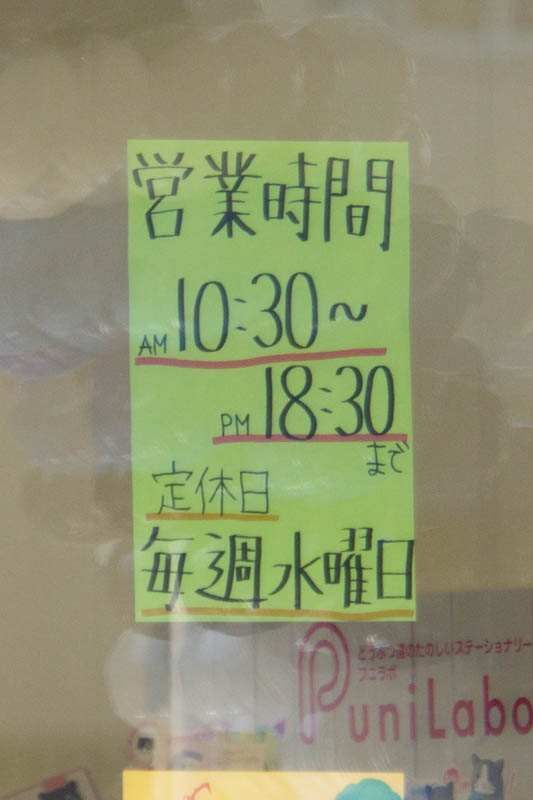 営業時間
AM 10:30～
PM 18:30
まで
定休日
毎週水曜日
どうぶつ達のたのしいステーショナリー
プニラボ
PuniLabo